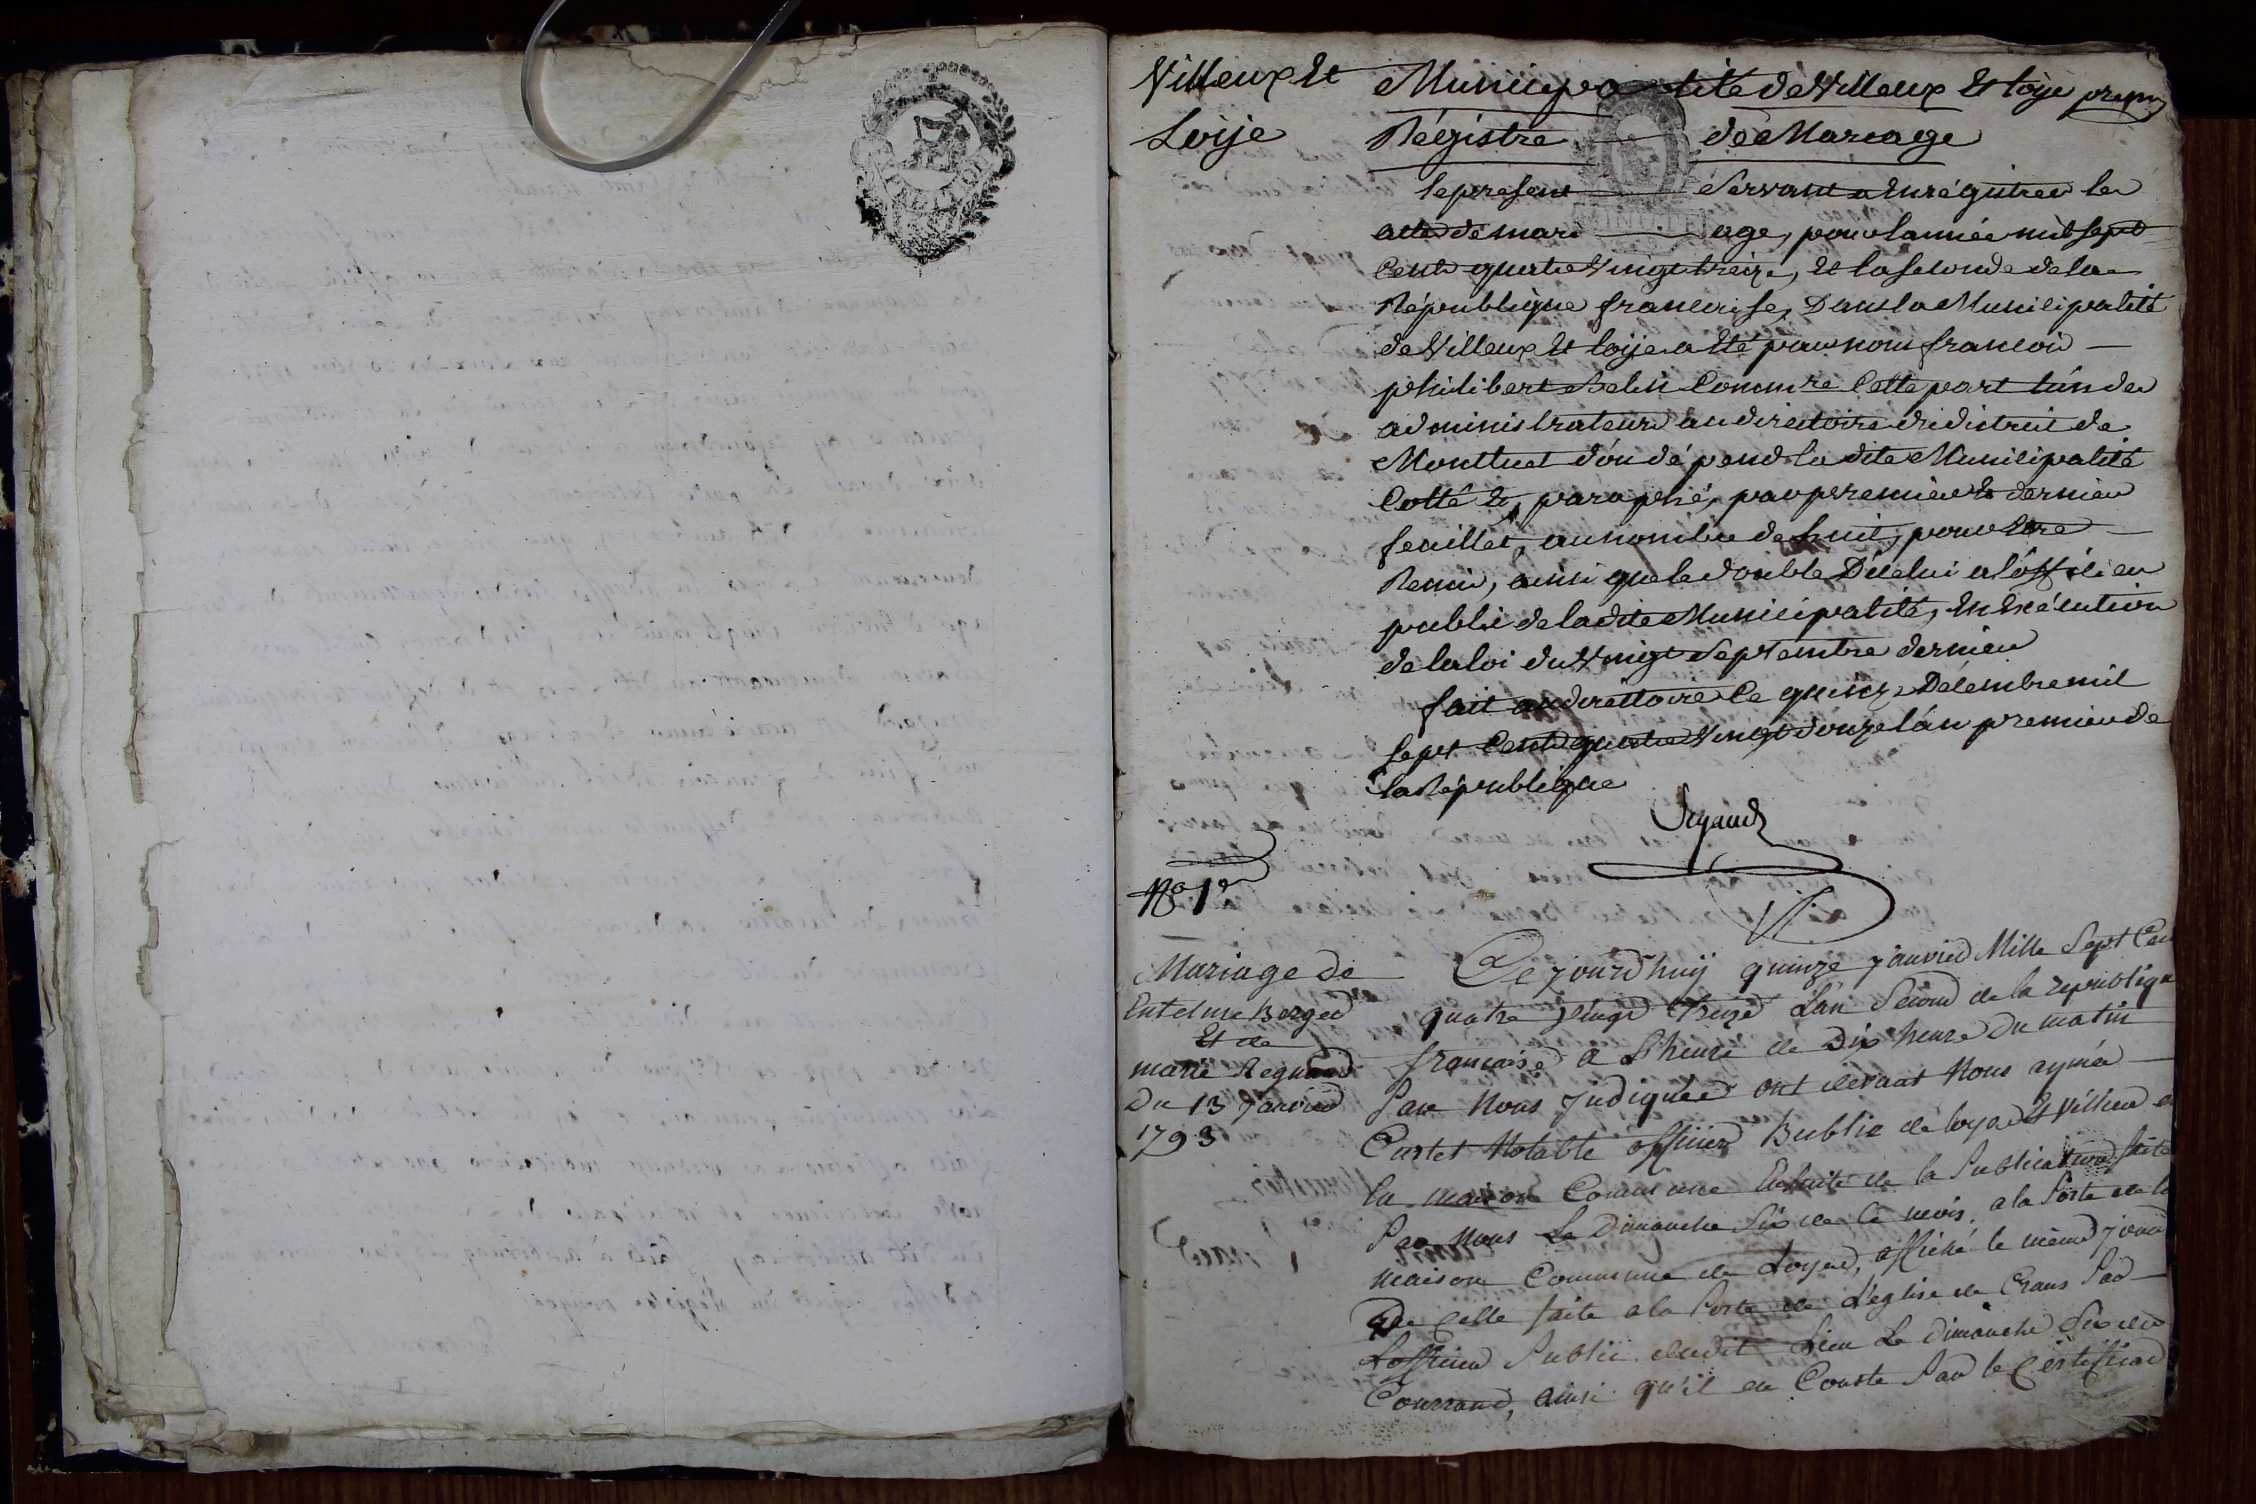 Villeux Et
Loije
Municipalité de Villeux Et loije premier
Régistre de Mariage
Le present Servant a Enrégistrer les
actes de mariage, pour lannée mil sept
Cents quatre Vingt treize, Et la seconde de la
République francoise, Dans la Municipalité
de Villeux Et loije a Eté par nous francois
philibert Belin Commre Cette part lún des
administrateurs au directoire du district de
Montluel dón dépend la dite Municipalité
Cotté Et paraphé, par premier Et dernier
feuillet, au nombre de huit, pour Etre
Remis, ainsi que le double Dicelui a lófficier
public de la dite Municipalité, En Exécution
de la loi du Vingt Septembre dernier
fait au directtoire Ce quinze Décembre mil
Sept Cents quatre Vingt douze lán premier de
la République
Sigaud
No 1er
Mariage de
Entelme Berger
Et de
marie Regnaud
Du 13 Janvier
1793
Ce jourd'huy quinze janvier Mille Sept Cen
quatre Vingt Treize L'an Second de la republique
francaise a L'heure de Dix heure Du matin
Par Nous Judiquée ont devant Nous aymé
Curtet Notable officier Public de loye Et Villieu en
la maison Commune Ensuite de la Publication faite
Par Nous Le Dimanche Six de Ce mois, a la Porte de la
Maison Commune de Loye, affiché le même jour
de Celle faite a la Porte de L'eglise de Crans Par
L'officier Public dudit Lieu Le dimanche Six du
Courrant, ainsi qu'il en Conste Par le Certificat